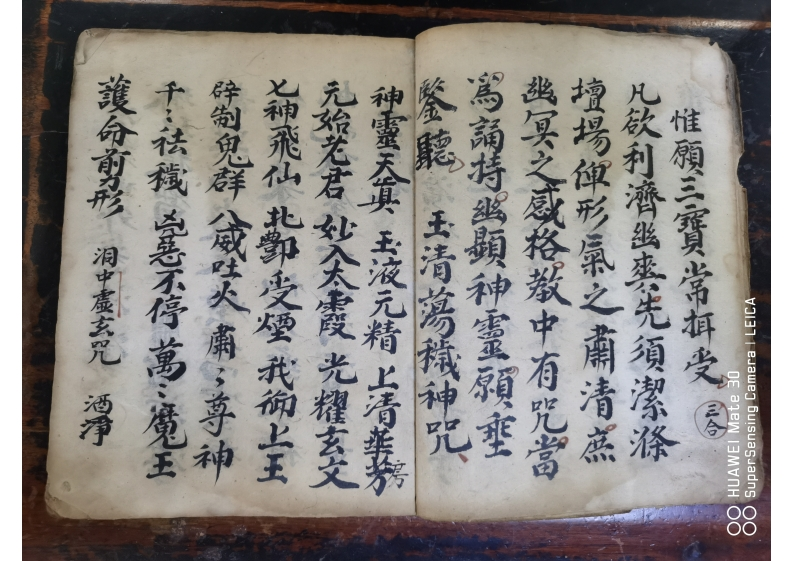 惟願三寶常拑受
三合
凡欲利濟幽爽先須潔滌
壇場俥形氣之肅清庶
幽冥之感格教中有咒當
為誦持幽顯神靈願垂
鑒聽 玉清蕩穢神咒
神靈天真 玉液元精 上清華芳
房
元始老君 妙入太霞 光耀玄文
七神飛仙 北酆受煙 我御上王
辟制鬼群 八威吐火 肅〻尊神
千〻祛穢 凶惡不停 萬〻魔王
護命前形 泪中虛玄咒 洒淨
HUAWEI Mate 30
SuperSensing Camera | LEICA